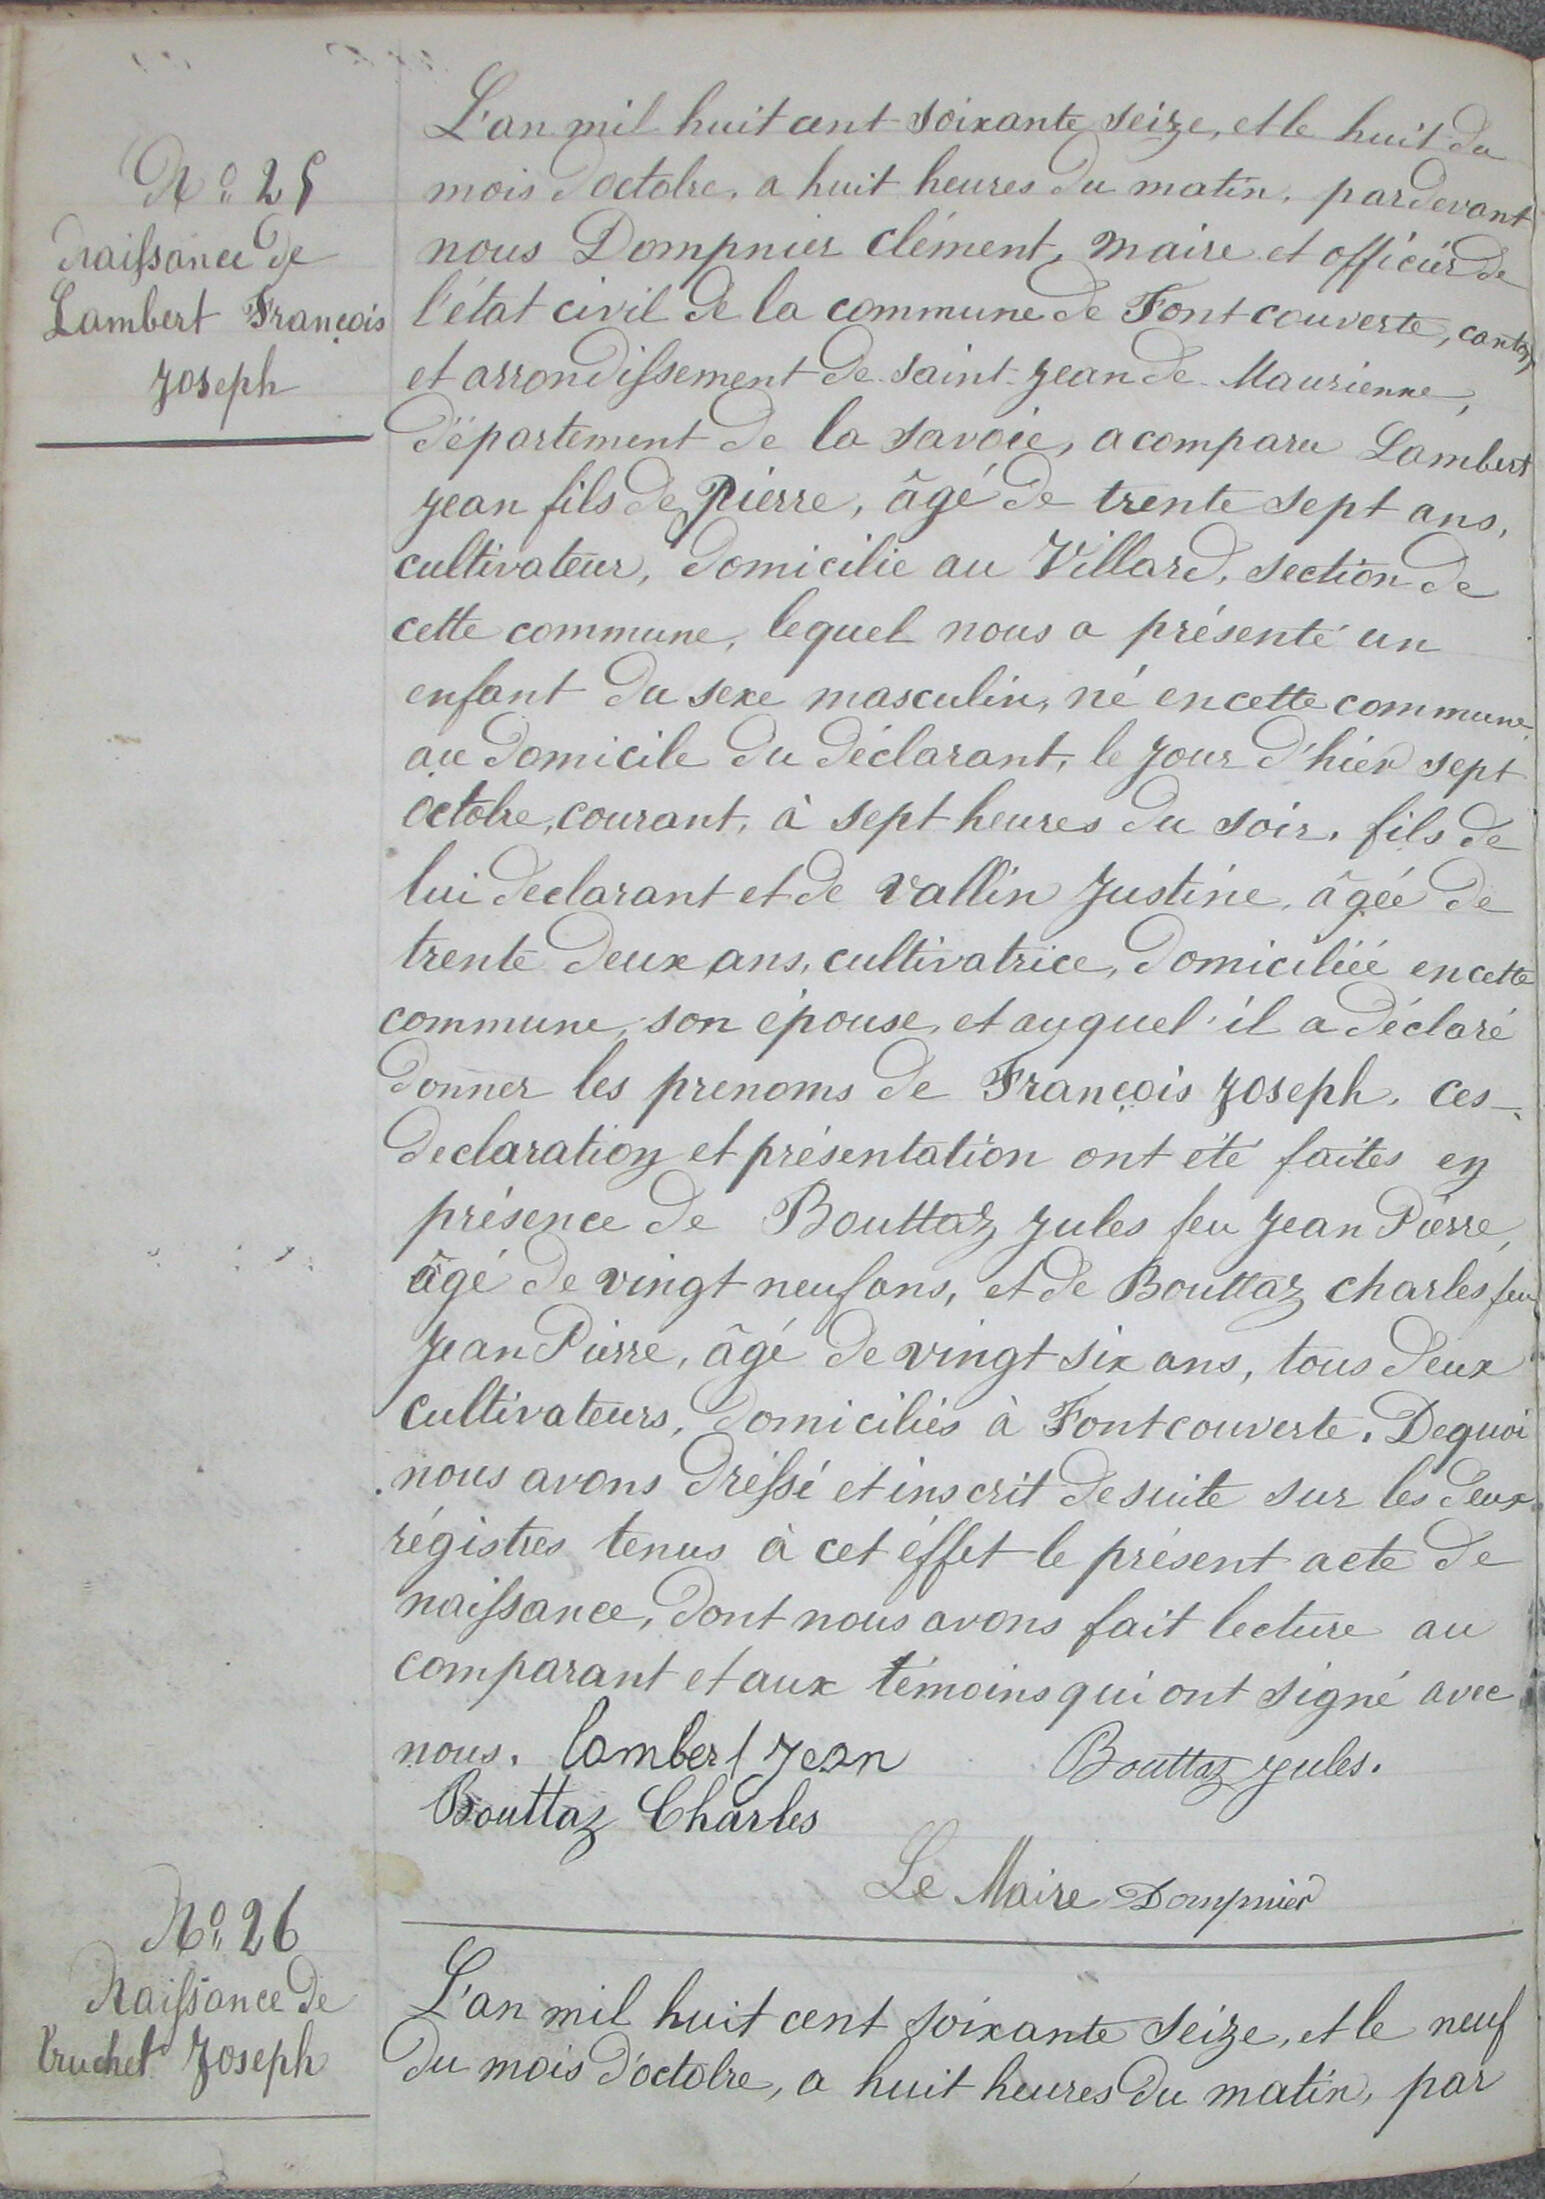 N° 25
Naissance de
Lambert François
Joseph
L'an mil huit cent soixante seize, et le huit du
mois d'octobre, a huit heures du matin, pardevant
nous Dompnier clément, maire et officier de
l'état civil de la commune de Fontcouverte, canton
et arrondissement de Saint-Jean de Maurienne,
département de la Savoie, a comparu Lambert
Jean fils de Pierre, âgé de trente sept ans,
cultivateur, domicilié au Villard, section de
cette commune, lequel nous a présenté un
enfant du sexe masculin, né en cette commune,
au domicile du déclarant, le jour d'hier sept
octobre, courant, à sept heures du soir, fils de
lui declarant et de Vallin Justine, âgée de
trente deux ans, cultivatrice, domiciliée en cette
commune, son épouse, et auquel il a déclaré
donner les prenoms de François Joseph. ces
declaration et présentation ont été faites en
présence de Bouttaz Jules feu Jean Pierre,
âgé de vingt neuf ans, et de Bouttaz charles feu
Jean Pierre, âgé de vingt six ans, tous deux
cultivateurs, domiciliés à Fontcouverte. De quoi
nous avons dressé et inscrit de suite sur les deux
régistres tenus à cet éffet le présent acte de
naissance, dont nous avons fait lecture au
comparant et aux témoins qui ont signé avec
nous. Lambert Jean Bouttaz Jules.
Bouttaz Charles
Le Maire Dompnier
N° 26
Naissance de
Truchet Joseph
L'an mil huit cent soixante seize, et le neuf
du mois d'octobre, a huit heures du matin, par